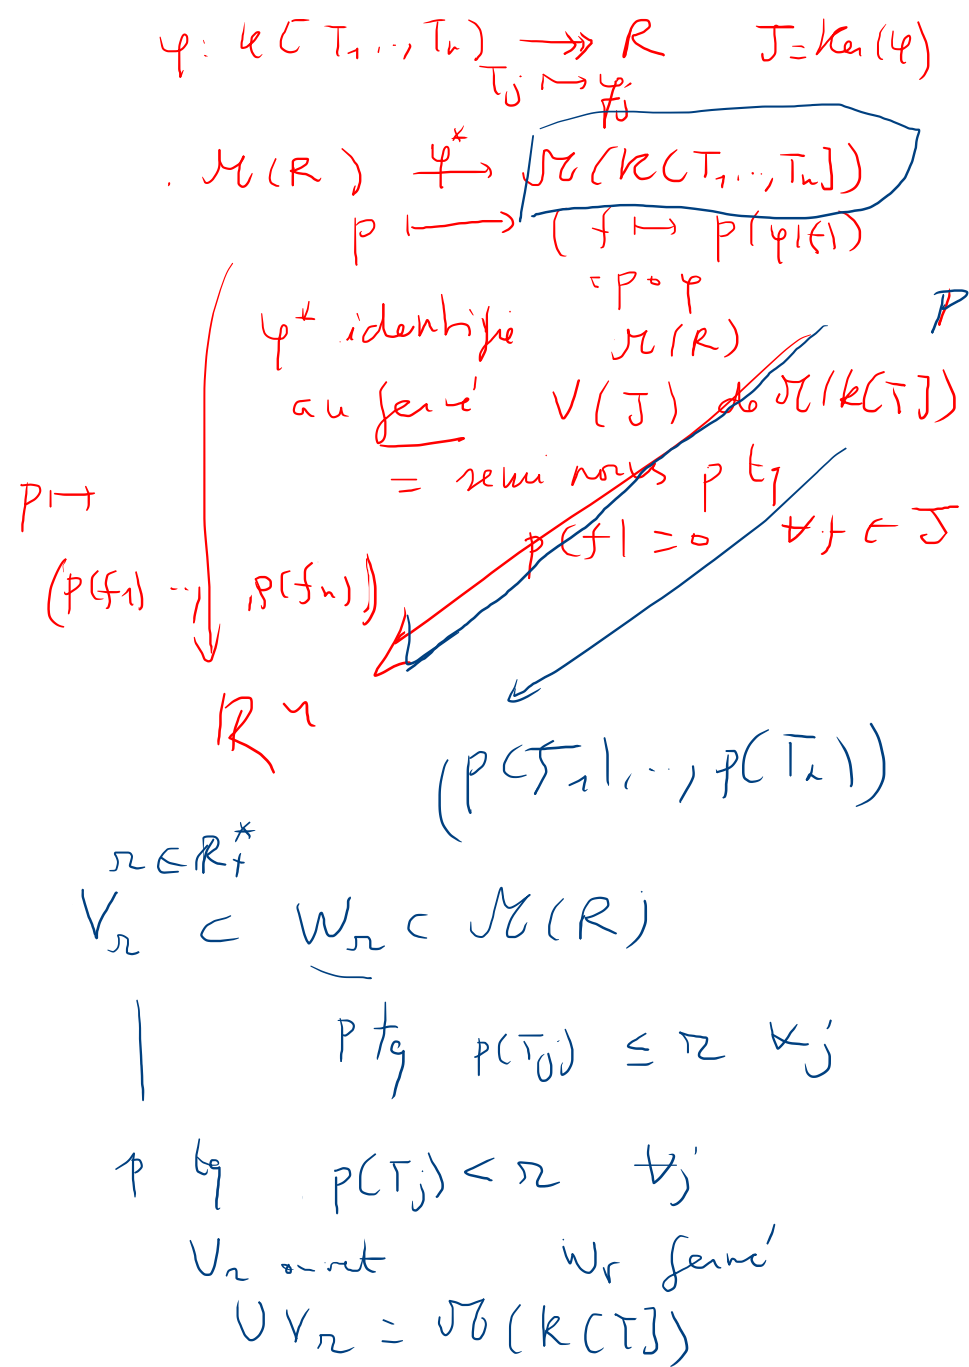 φ: k[T₁..,Tₙ] ↠ R J=Ker(φ)
Tⱼ ↦ fⱼ
. ℳ(R) φ*⟶ ℳ(k[T₁..,Tₙ])
p ⟼ (f ↦ p(φ(f))
= p∘φ
p
φ* identifie ℳ(R)
au fermé V(J) de ℳ(k[T])
= semi normes p tq
p(f) = 0 ∀f ∈ J
p ↦
(p(f₁) .., p(fₙ))
ℝⁿ
(p(T₁),..,p(Tₙ))
r ∈ ℝ₊*
Vᵣ ⊂ Wᵣ ⊂ ℳ(R)
p tq p(Tⱼ) ≤ r ∀j
p tq p(Tⱼ) < r ∀j
Vᵣ ouvert Wᵣ fermé
∪Vᵣ = ℳ(k[T])